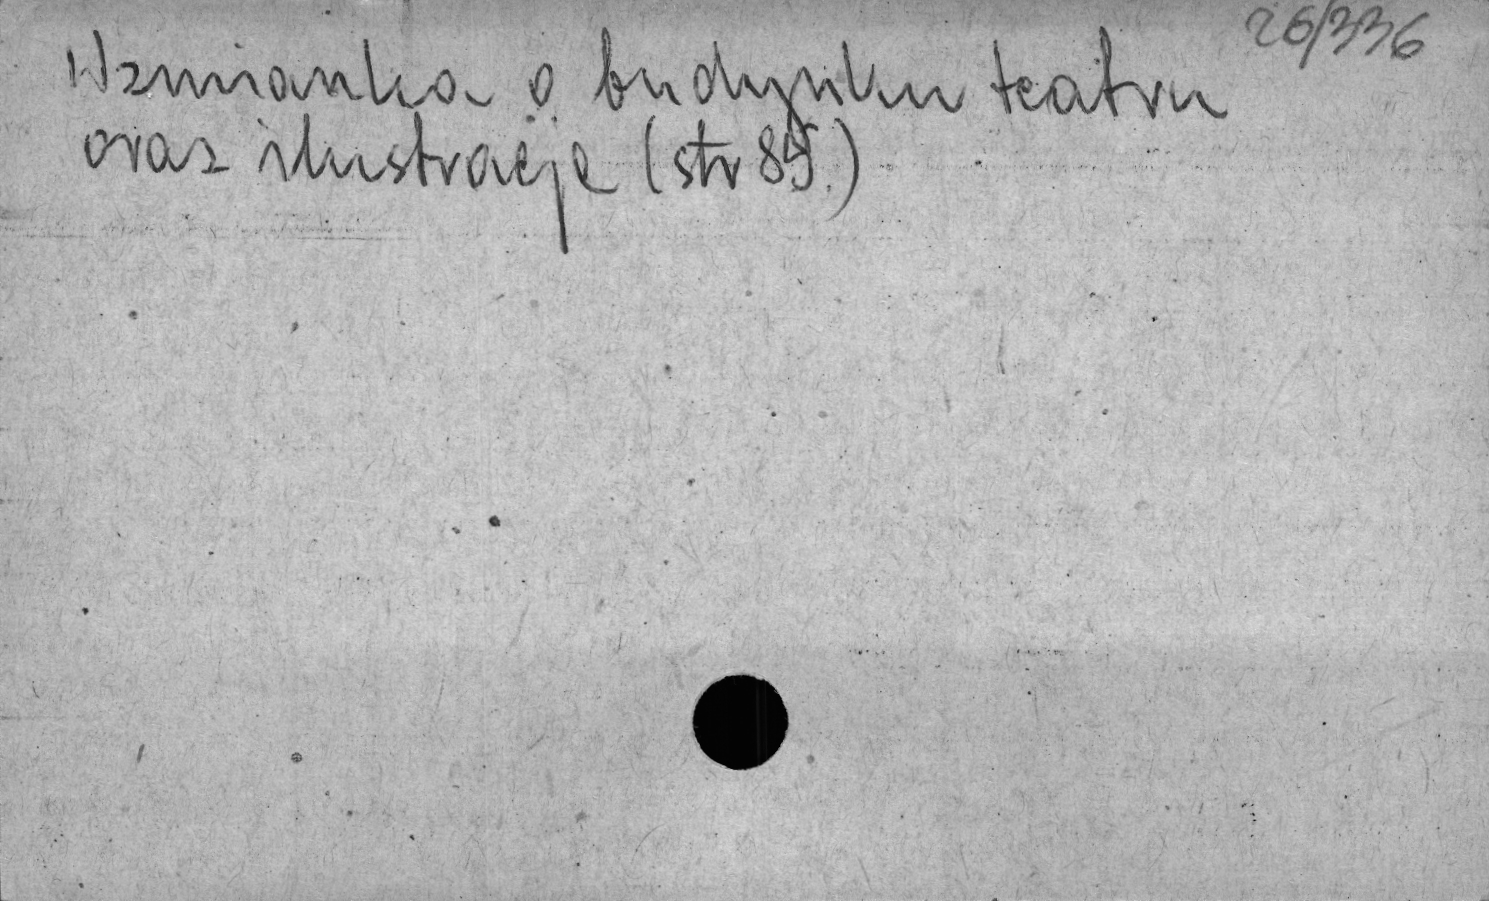 26/336
Wzmianka o budynku teatru
oraz ilustracje (str 85.)